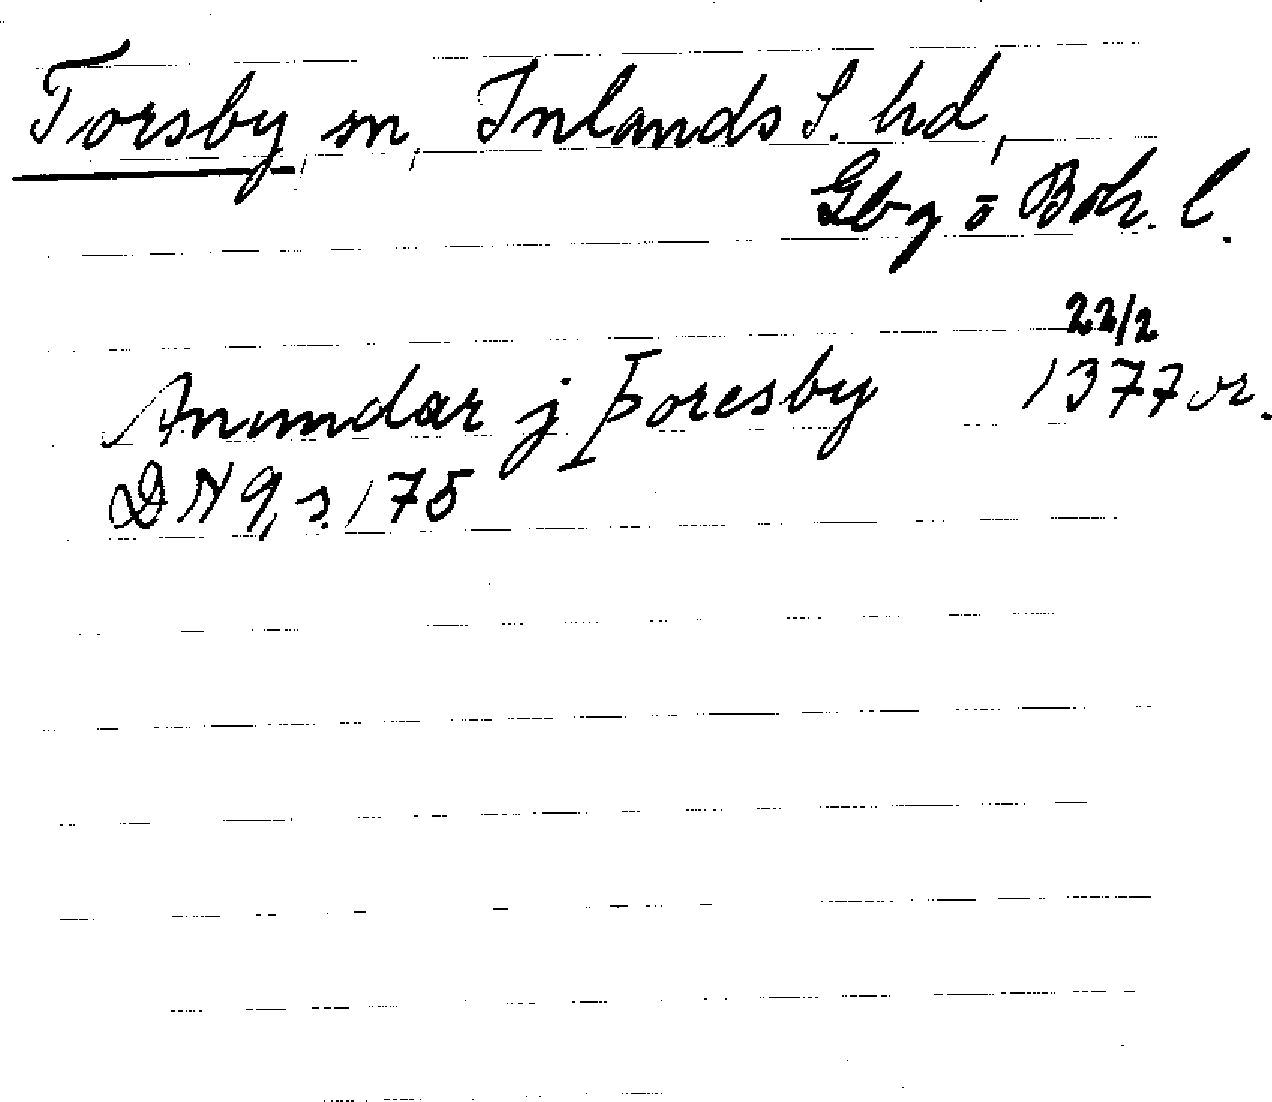 Torsby, sn, Inlands S. hd,
Gbg o Boh. l.
22/2
Anundar j Þoresby 1377 or.
DN 9, s. 175